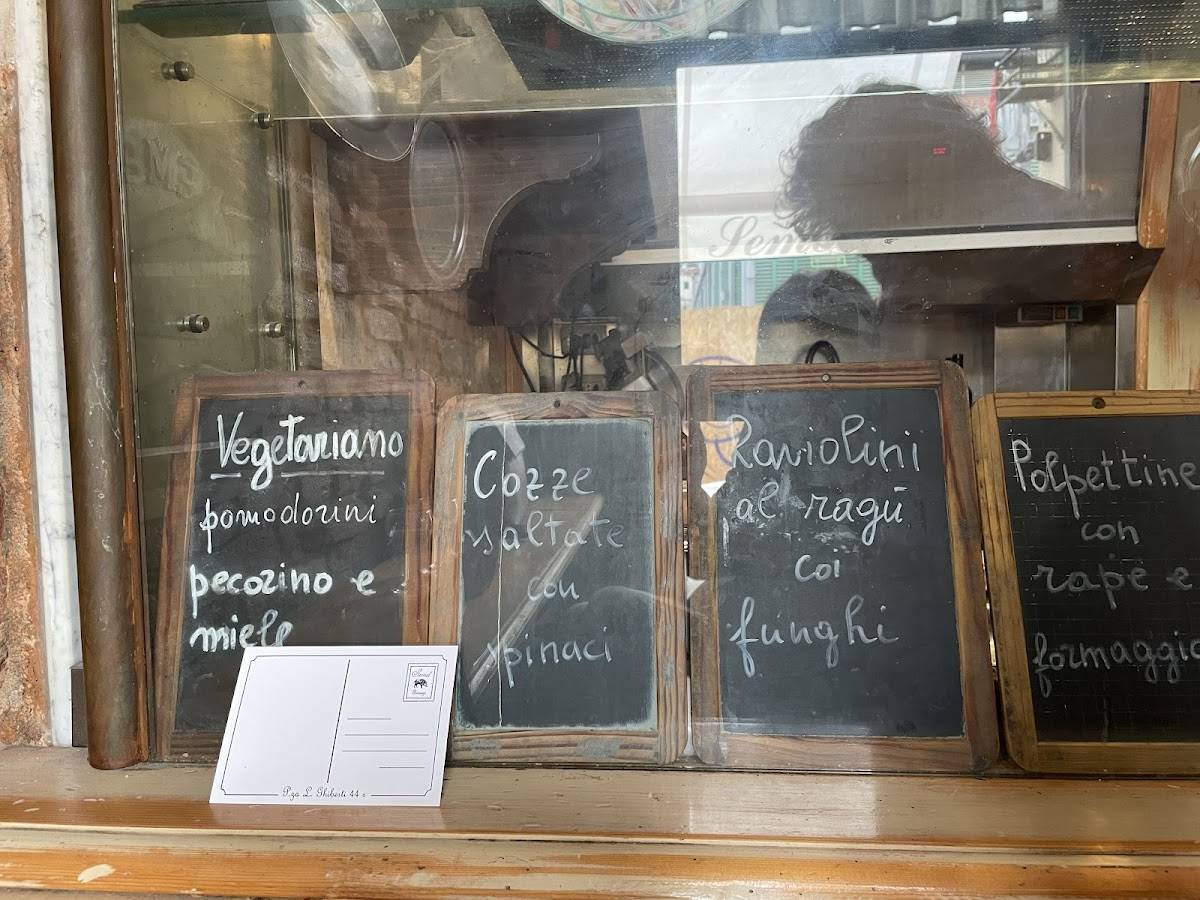 Vegetariano
pomodorini
pecorino e
miele
Cozze
saltate
con
spinaci
Raviolini
al ragù
coi
funghi
Polpettine
con
rape e
formaggio
Semel
P.za L. Ghiberti 44 r